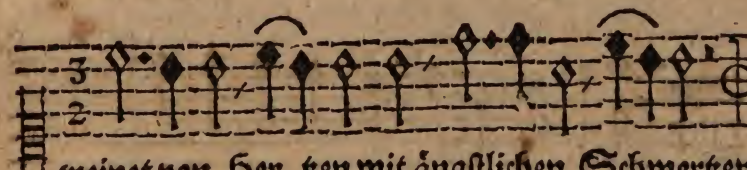 3
2
weinet von Her- tzen mit ängstlichen Schmertzen